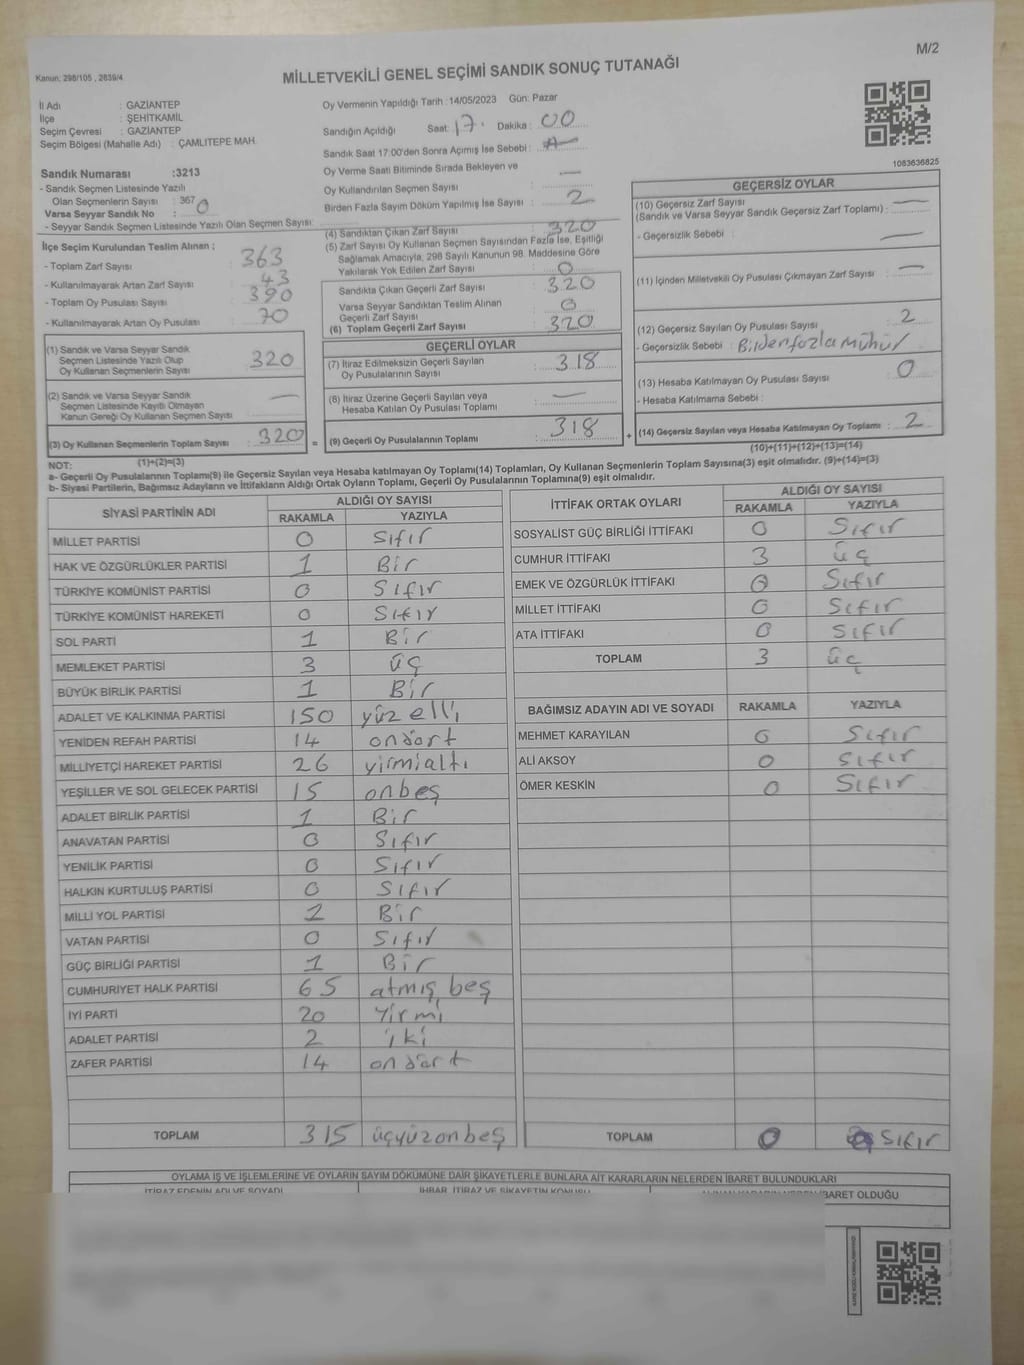 M/2
Kanun: 298/105 , 2839/4
MİLLETVEKİLİ GENEL SEÇİMİ SANDIK SONUÇ TUTANAĞI
İl Adı : GAZİANTEP
İlçe : ŞEHİTKAMİL
Seçim Çevresi : GAZİANTEP
Seçim Bölgesi (Mahalle Adı) : ÇAMLITEPE MAH.
Sandık Numarası :3213
- Sandık Seçmen Listesinde Yazılı
Olan Seçmenlerin Sayısı : 367
Varsa Seyyar Sandık No : 0
- Seyyar Sandık Seçmen Listesinde Yazılı Olan Seçmen Sayısı:
Oy Vermenin Yapıldığı Tarih : 14/05/2023 Gün: Pazar
Sandığın Açıldığı Saat: 17. Dakika : 00
Sandık Saat 17:00'den Sonra Açımış İse Sebebi :
Oy Verme Saati Bitiminde Sırada Bekleyen ve
Oy Kullandırılan Seçmen Sayısı : —
Birden Fazla Sayım Döküm Yapılmış İse Sayısı : 2
1083636825
İlçe Seçim Kurulundan Teslim Alınan ;
- Toplam Zarf Sayısı : 363
- Kullanılmayarak Artan Zarf Sayısı : 43
- Toplam Oy Pusulası Sayısı : 390
- Kullanılmayarak Artan Oy Pusulası : 70
(1) Sandık ve Varsa Seyyar Sandık
Seçmen Listesinde Yazılı Olup
Oy Kullanan Seçmenlerin Sayısı : 320
(2) Sandık ve Varsa Seyyar Sandık
Seçmen Listesinde Kayıtlı Olmayan
Kanun Gereği Oy Kullanan Seçmen Sayısı : —
(3) Oy Kullanan Seçmenlerin Toplam Sayısı : 320 =
(1)+(2)=(3)
(4) Sandıktan Çıkan Zarf Sayısı : 320
(5) Zarf Sayısı Oy Kullanan Seçmen Sayısından Fazla İse, Eşitliği
Sağlamak Amacıyla, 298 Sayılı Kanunun 98. Maddesine Göre
Yakılarak Yok Edilen Zarf Sayısı : 0
Sandıkta Çıkan Geçerli Zarf Sayısı : 320
Varsa Seyyar Sandıktan Teslim Alınan
Geçerli Zarf Sayısı : 0
(6) Toplam Geçerli Zarf Sayısı : 320
GEÇERLİ OYLAR
(7) İtiraz Edilmeksizin Geçerli Sayılan
Oy Pusulalarının Sayısı : 318
(8) İtiraz Üzerine Geçerli Sayılan veya
Hesaba Katılan Oy Pusulası Toplamı : —
(9) Geçerli Oy Pusulalarının Toplamı : 318 +
GEÇERSİZ OYLAR
(10) Geçersiz Zarf Sayısı
(Sandık ve Varsa Seyyar Sandık Geçersiz Zarf Toplamı) : —
- Geçersizlik Sebebi : —
(11) İçinden Milletvekili Oy Pusulası Çıkmayan Zarf Sayısı : —
(12) Geçersiz Sayılan Oy Pusulası Sayısı : 2
- Geçersizlik Sebebi : Birden fazla mühür
(13) Hesaba Katılmayan Oy Pusulası Sayısı : 0
- Hesaba Katılmama Sebebi :
(14) Geçersiz Sayılan veya Hesaba Katılmayan Oy Toplamı : 2
(10)+(11)+(12)+(13)=(14)
NOT:
a- Geçerli Oy Pusulalarının Toplamı(9) ile Geçersiz Sayılan veya Hesaba katılmayan Oy Toplamı(14) Toplamları, Oy Kullanan Seçmenlerin Toplam Sayısına(3) eşit olmalıdır. (9)+(14)=(3)
b- Siyasi Partilerin, Bağımsız Adayların ve İttifakların Aldığı Ortak Oyların Toplamı, Geçerli Oy Pusulalarının Toplamına(9) eşit olmalıdır.
SİYASİ PARTİNİN ADI ALDIĞI OY SAYISI
RAKAMLA YAZIYLA
MİLLET PARTİSİ 0 Sıfır
HAK VE ÖZGÜRLÜKLER PARTİSİ 1 Bir
TÜRKİYE KOMÜNİST PARTİSİ 0 Sıfır
TÜRKİYE KOMÜNİST HAREKETİ 0 Sıfır
SOL PARTİ 1 Bir
MEMLEKET PARTİSİ 3 üç
BÜYÜK BİRLİK PARTİSİ 1 Bir
ADALET VE KALKINMA PARTİSİ 150 yüz elli
YENİDEN REFAH PARTİSİ 14 ondört
MİLLİYETÇİ HAREKET PARTİSİ 26 yirmialtı
YEŞİLLER VE SOL GELECEK PARTİSİ 15 onbeş
ADALET BİRLİK PARTİSİ 1 Bir
ANAVATAN PARTİSİ 0 Sıfır
YENİLİK PARTİSİ 0 Sıfır
HALKIN KURTULUŞ PARTİSİ 0 Sıfır
MİLLİ YOL PARTİSİ 1 Bir
VATAN PARTİSİ 0 Sıfır
GÜÇ BİRLİĞİ PARTİSİ 1 Bir
CUMHURİYET HALK PARTİSİ 65 atmış beş
İYİ PARTİ 20 Yirmi
ADALET PARTİSİ 2 iki
ZAFER PARTİSİ 14 ondört
TOPLAM 315 üçyüzonbeş
İTTİFAK ORTAK OYLARI ALDIĞI OY SAYISI
RAKAMLA YAZIYLA
SOSYALİST GÜÇ BİRLİĞİ İTTİFAKI 0 Sıfır
CUMHUR İTTİFAKI 3 üç
EMEK VE ÖZGÜRLÜK İTTİFAKI 0 Sıfır
MİLLET İTTİFAKI 0 Sıfır
ATA İTTİFAKI 0 Sıfır
TOPLAM 3 üç
BAĞIMSIZ ADAYIN ADI VE SOYADI RAKAMLA YAZIYLA
MEHMET KARAYILAN 0 Sıfır
ALİ AKSOY 0 Sıfır
ÖMER KESKİN 0 Sıfır
TOPLAM 0 Sıfır
OYLAMA İŞ VE İŞLEMLERİNE VE OYLARIN SAYIM DÖKÜMÜNE DAİR ŞİKAYETLERLE BUNLARA AİT KARARLARIN NELERDEN İBARET BULUNDUKLARI
İTİRAZ EDENİN ADI VE SOYADI İHBAR, İTİRAZ VE ŞİKAYETİN KONUSU İBARET OLDUĞU